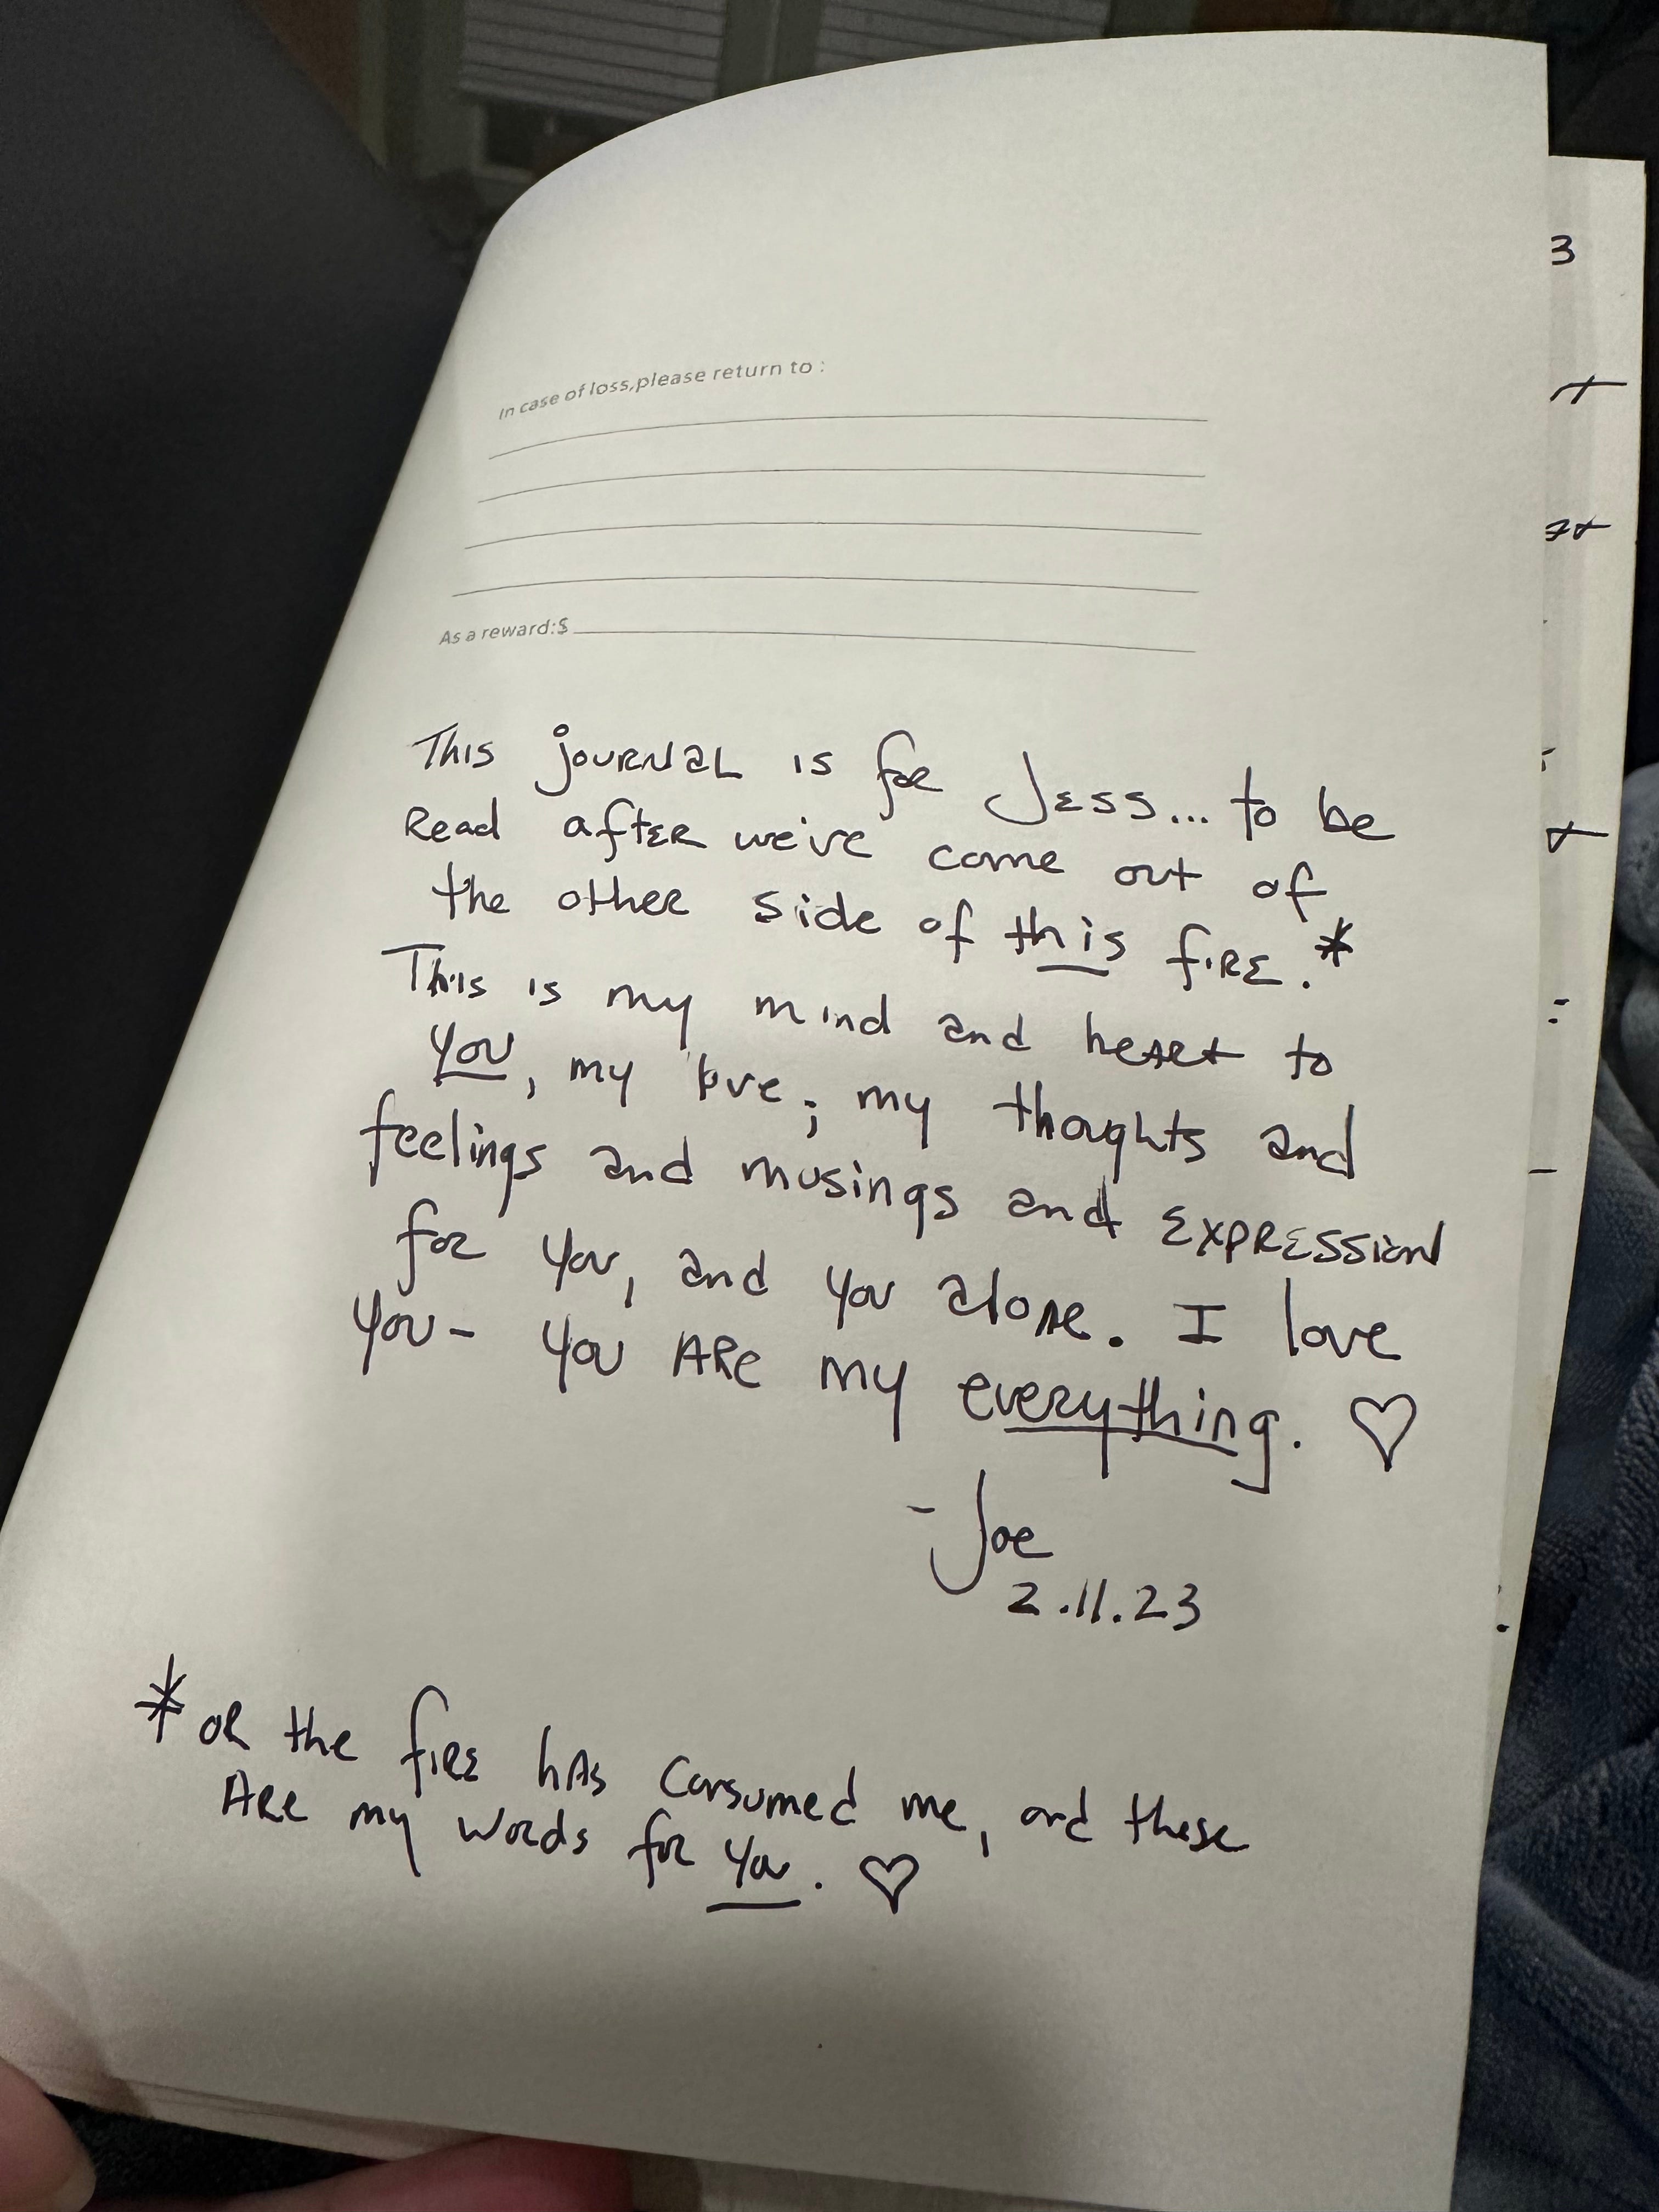 In case of loss,please return to :
As a reward:$
This journal is for Jess... to be
read after we've come out of
the other side of this fire.*
This is my mind and heart to
you, my love; my thoughts and
feelings and musings and expression
for you, and you alone. I love
you- you are my everything. ♡
-Joe
2.11.23
*or the fire has consumed me, and these
are my words for you. ♡
3